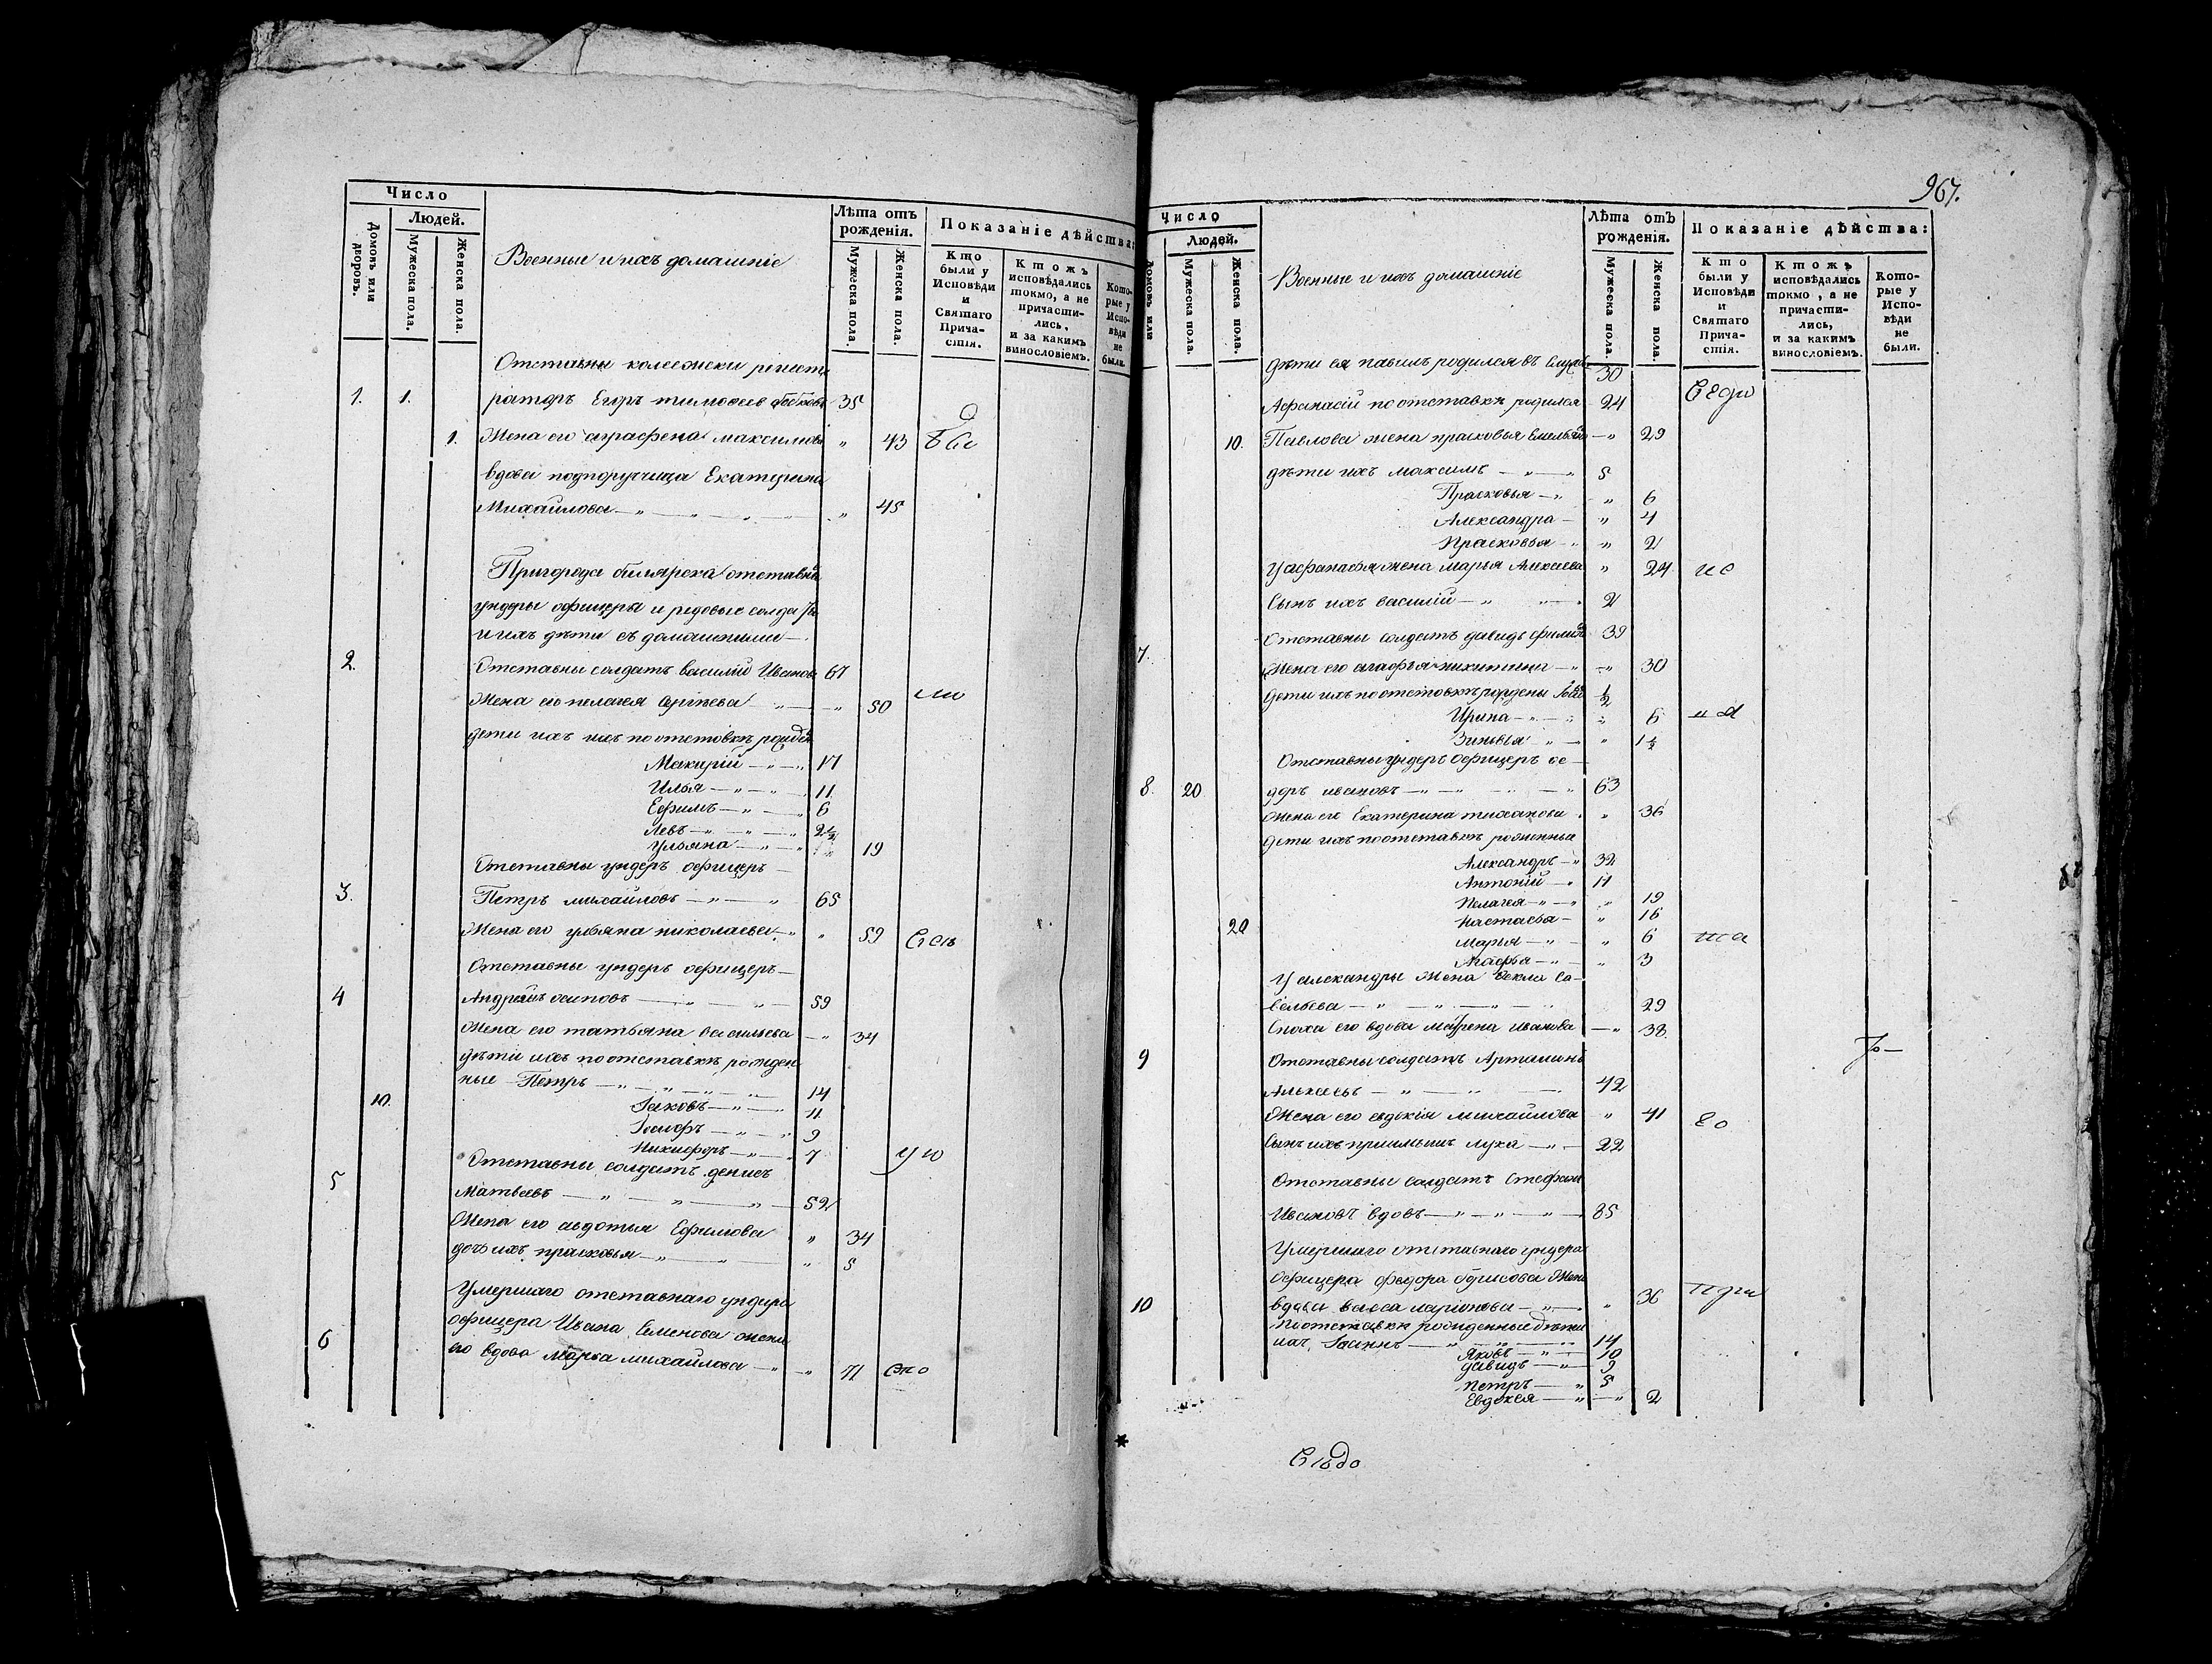 Число
Людей.
Домовъ или дворовъ.
Мужеска пола.
Женска пола.
Военные и ихъ домашніе
Лѣта отъ рожденія.
Мужеска пола.
Женска пола.
Показаніе дѣйства:
Кто были у Исповѣди и Святаго Прича- стія.
Ктожъ исповѣдались токмо, а не причасти- лись, и за какимъ винословіемъ.
Кото- рые у Испо- вѣди не были.
Отставны колежски регистр
1. 1. раторъ Егоръ тимофеев 35
1. Жена его аграфена максимова „ 43
вдова подпоручица Екатерина
Михайлова — „ — „ — „ 45
Пригорода билярска отставны
ундеры офицеры и редовые солдаты
и ихъ дѣти съ домашними —
2. Отставны солдатъ василій Ивановъ 67
Жена его пелагея Сергѣева „ — „ 50
дети ихъ по отставкѣ рожден
Макарій — „ — „ 17
Илья — „ — „ — 11
Ефимъ — „ — „ 6
Левъ — „ — „ — „ 2 1/2
Ульяна — „ — „ 19
Отставны ундеръ офицеръ —
3. Петръ михайловъ — „ — „ 65
Жена его ульяна николаева — „ „ 59
Отставны ундеръ офицеръ —
4 Андрей осиповъ — „ — „ — 59
Жена его татьяна васильева — „ 34
дѣти ихъ по отставкѣ рожден
ные Петръ — „ — „ — „ — 14
10. Іаковъ — „ — „ 11
Іосифъ — „ — „ 9
Никифоръ — „ — „ 7
Отставны солдатъ денисъ
5 Матвеевъ — „ — „ — „ — 52
Жена его авдотья Ефимова „ 34
дочь ихъ прасковья — „ — „ „ 5
Умершаго отставнаго ундера
офицера Ивана Семенова жена
6 его вдова Марья михайлова — „ — „ 71
967.
Число
Людей.
Домовъ или
Мужеска пола.
Женска пола.
Военные и ихъ домашніе
Лѣта отъ рожденія.
Мужеска пола.
Женска пола.
Показаніе дѣйства:
Кто были у Исповѣди и Святаго Прича- стія.
Ктожъ исповѣдались токмо, а не причасти- лись, и за какимъ винословіемъ.
Кото- рые у Испо- вѣди не были.
дѣти ея павилъ родился въ службе 30
Афанасій по отставкѣ родился 24
10. Павлова жена прасковья Емельян — „ 29
дѣти ихъ максимъ — „ — „ 5
Прасковья — „ „ 6
Александра — „ 4
Прасковья — „ „ 2
У афанасья жена Марья Алексеева „ 24
Сынъ ихъ василій — „ „ 2
7. Отставны солдатъ давидъ филип 39
Жена его агафья никитина — „ — „ 30
Дети ихъ по отставкѣ рождены 1/2
Ирина — „ — „ „ 6
Зиновья „ — „ 1 1/2
Отставны ундеръ офицеръ ѳе —
8. 20 доръ ивановъ — „ — „ — „ 63
Жена его Екатерина тиханова „ „ 36
Дети ихъ по отставкѣ рожденные
Александръ — „ 32
Антоній — „ 11
Пелагея — „ — „ „ 19
Настасья — „ 16
20 Марья — „ — „ 6
Агафья — „ — „ 3
У александры Жена Ѳекла Са-
вельева — „ — „ — „ — 29
Сноха его вдова матрена иванова — „ 38.
9 Отставны солдатъ
Алексеевъ — „ — „ — 42
Жена его евдокія михайлова „ 41
Сынъ ихъ лука — „ — 22
Отставны солдатъ стефанъ
Ивановъ вдовъ — „ — „ — „ — 85
Умершаго отставнаго ундера
Офицера федора борисова Жена
10 вдова васса ларіонова — „ — „ 36
По отставкѣ рожденные дѣти
ихъ, Іоаннъ — „ — „ — 14
Яковъ — „ — 10
давидъ — „ — 9
петръ — „ 5
Евдокея — „ — „ 2